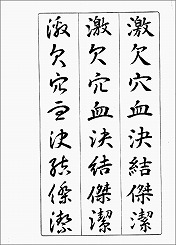 激欠穴血決結傑潔
激欠穴血決結傑潔
激欠穴血決結傑潔